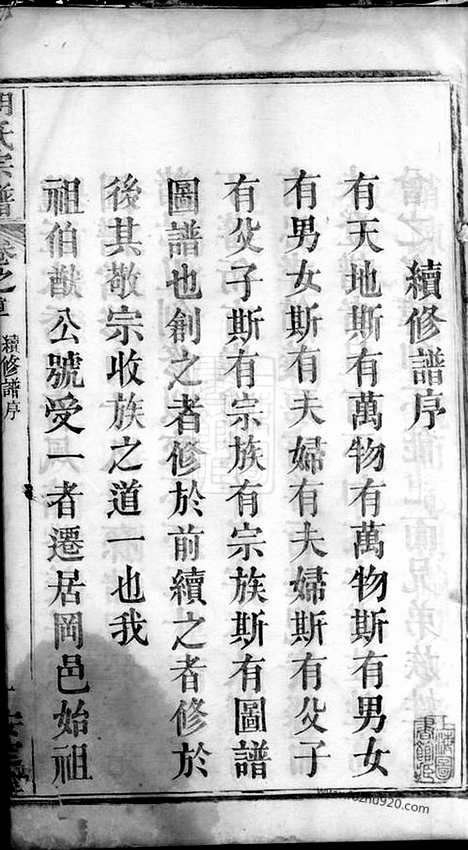 續修譜序
有天地斯有萬物有萬物斯有男女
有男女斯有夫婦有夫婦斯有父子
有父子斯有宗族有宗族斯有圖譜
圖譜也創之者修於前續之者修於
後其敬宗收族之道一也我
祖伯猷公號受一者遷居岡邑始祖
氏宗譜
卷之首
續修譜序
上海圖書館藏